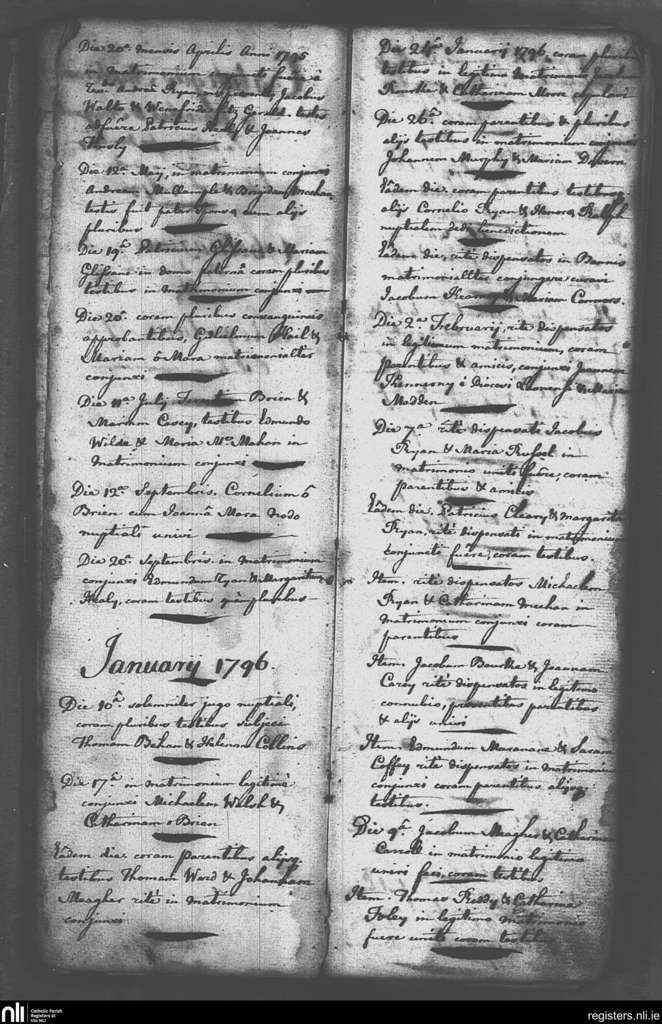 Die 20ª. mensis Aprilis Anni 1795
in matrimonium conjuncti fuere
Andrea Ryan Jacobus
Walsh & testes
adfuere Patricius Healy & Joannes
Die 12ª. May, in matrimonium conjunxi
Andream & Brigidam Meehan
testis fuit pater sponsæ cum alijs
pluribus
Die 19ª. Patricium Glissane & Mariam
Glissane in domo paternâ coram pluribus
testibus in matrimonium conjunxi
Die 20ª. coram pluribus consanguineis
approbantibus, Gulielmum &
Mariam ô Mara matrimonialiter
conjunxi
Die 11ª. July Brien &
Mariam Casey, testibus Edmundo
Wilde & Maria Mc. Mahon in
matrimonium conjunxi
Die 12ª. Septembris. Cornelium ô
Brien cum Joannâ Mara nodo
nuptiali univi
Die 20ª. Septembris. in matrimonium
conjunxi Edmundum Ryan & Margaritam
Healy, coram testibus quàm pluribus
January 1796.
Die 10ª. solemniter jugo nuptiali,
coram pluribus testibus subjeci
Thomam Behan & Helenam Collins
Die 17ª. in matrimonium legitimè
conjunxi Michaelem Walsh &
Catharinam o Brien
Eâdem die. coram parentibus alijsq.
testibus Thomam Ward & Johannam
Meagher ritè in matrimonium
conjunxi
Die 24ª. Januarij 1796, coram pluribus
testibus in legitimo matrimonio
Rourke & Catharinam Moore copulavi
Die 26ª. coram parentibus & pluribus
alijs testibus in matrimonium conjunxi
Johannem Murphy & Mariam
Eâdem die. coram parentibus testibusq.
alijs Cornelio Ryan & Honora
nuptialem dedi benedictionem
Eâdem die, ritè dispensatos in Bannis
matrimonialiter conjungere curavi
Jacobum & Mariam Connors.
Die 2ª. Februarij, ritè dispensatos
in legitimum matrimonium, coram
parentibus & amicis, conjunxi Joannem
Kennerny è Diocesi & Mariam
Madden
Die 7ª. ritè dispensati Jacobus
Ryan & Maria Russel in
matrimonio uniti fuêre, coram
parentibus & amicis
Eâdem die. Patricius Cleary & Margarita
Ryan, ritè dispensati in matrimonium
conjuncti fuere, coram testibus.
Item. ritè dispensatos Michaelem
Ryan & Catharinam Meehan in
matrimonium conjunxi coram
parentibus
Item. Jacobum Bourke & Joannam
Carey ritè dispensatos in legitimo
connubio, presentibus parentibus
& alijs univi
Item. Edmundum & Saram
Coffey ritè dispensatos in matrimonium
conjunxi coram parentibus alijsq.
testibus.
Die 9ª. Jacobum Meagher & Catharinam
Carroll in matrimonio legitimo
uniri feci, coram testibus.
Item. Thomas & Catharina
Foley in legitimo matrimonio
fuere uniti coram testibus
nli
Catholic Parish
Registers at
the NLI
registers.nli.ie